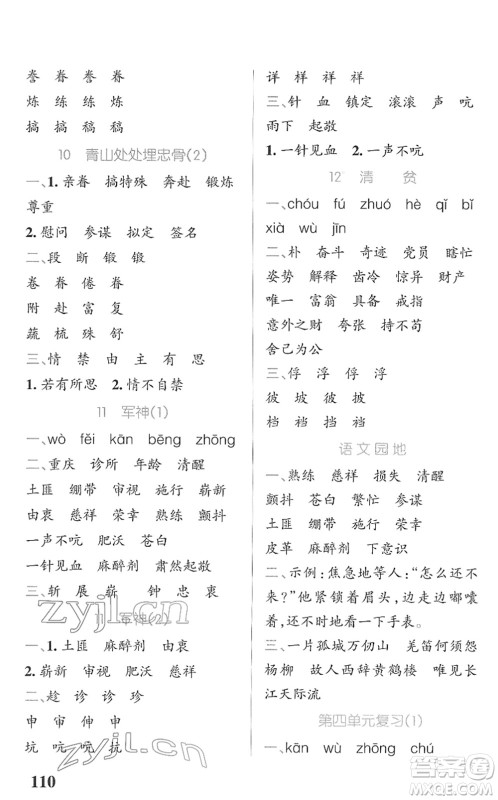 誊 眷 誊 眷
炼 练 练 炼
搞 犒 犒 搞
10 青山处处埋忠骨(2)
一、1. 亲眷 搞特殊 奔赴 锻炼
尊重
2. 慰问 参谋 拟定 签名
二、段 断 锻 锻
卷 眷 倦 眷
附 赴 富 复
蔬 梳 殊 舒
三、情 禁 由 主 有 思
1. 若有所思 2. 情不自禁
11 军神(1)
一、wò fěi kān bēng zhōng
二、重庆 诊所 年龄 清醒
土匪 绷带 审视 施行 崭新
由衷 慈祥 荣幸 颤抖
一声不吭 肥沃 苍白
一针见血 麻醉剂 肃然起敬
三、斩 展 崭 钟 忠 衷
11 军神(2)
一、1. 土匪 麻醉剂 由衷
2. 崭新 绷带 肥沃 慈祥
二、趁 诊 诊 珍
申 审 伸 申
坑 吭 吭 抗
110
详 样 祥 祥
三、针 血 镇定 滚滚 声 吭
雨下 起敬
1. 一针见血 2. 一声不吭
12 清 贫
一、chóu fú zhuó hè qǐ bǐ
xià wù jīn
二、朴 奋斗 奇迹 党员 瞎忙
姿势 解释 齿冷 惊异 财产
唯一 富翁 具备 戒指
意外之财 夸张 拷一拷
舍己为公
三、俘 浮 浮 俘
彼 坡 披 彼
档 挡 挡 档
语文园地
一、熟练 慈祥 损失 清醒
颤抖 苍白 繁忙 参谋
土匪 绷带 施行 荣幸
皮革 麻醉剂 下意识
二、示例：焦急地等人：“怎么还不
来?”他紧锁着眉头，几次走
出门外张望，嘴里还不断嘟囔
着什么，时不时用手机看
时间。
三、一片孤城万仞山 羌笛何须怨
杨柳 故人西辞黄鹤楼 唯见长
江天际流
第四单元复习(1)
一、kān wù zhōng chú
zyjl.cn
zyjl.cn
答案圈
MXQE.COM